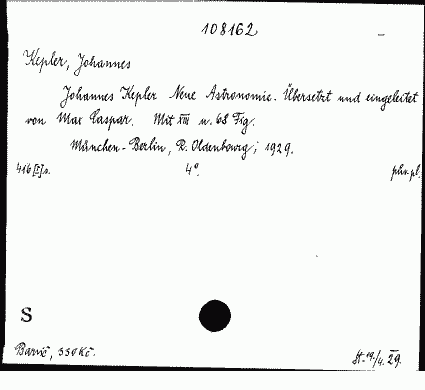 108162
Kepler, Johannes
Johannes Kepler Neue Astronomie. Übersetzt und eingeleitet
von Max Caspar. Mit XIII u. 68 Fig.
München-Berlin, R. Oldenbourg, 1929.
416 [I] s. 4°.
S
Barvič, 330 Kč. 29.